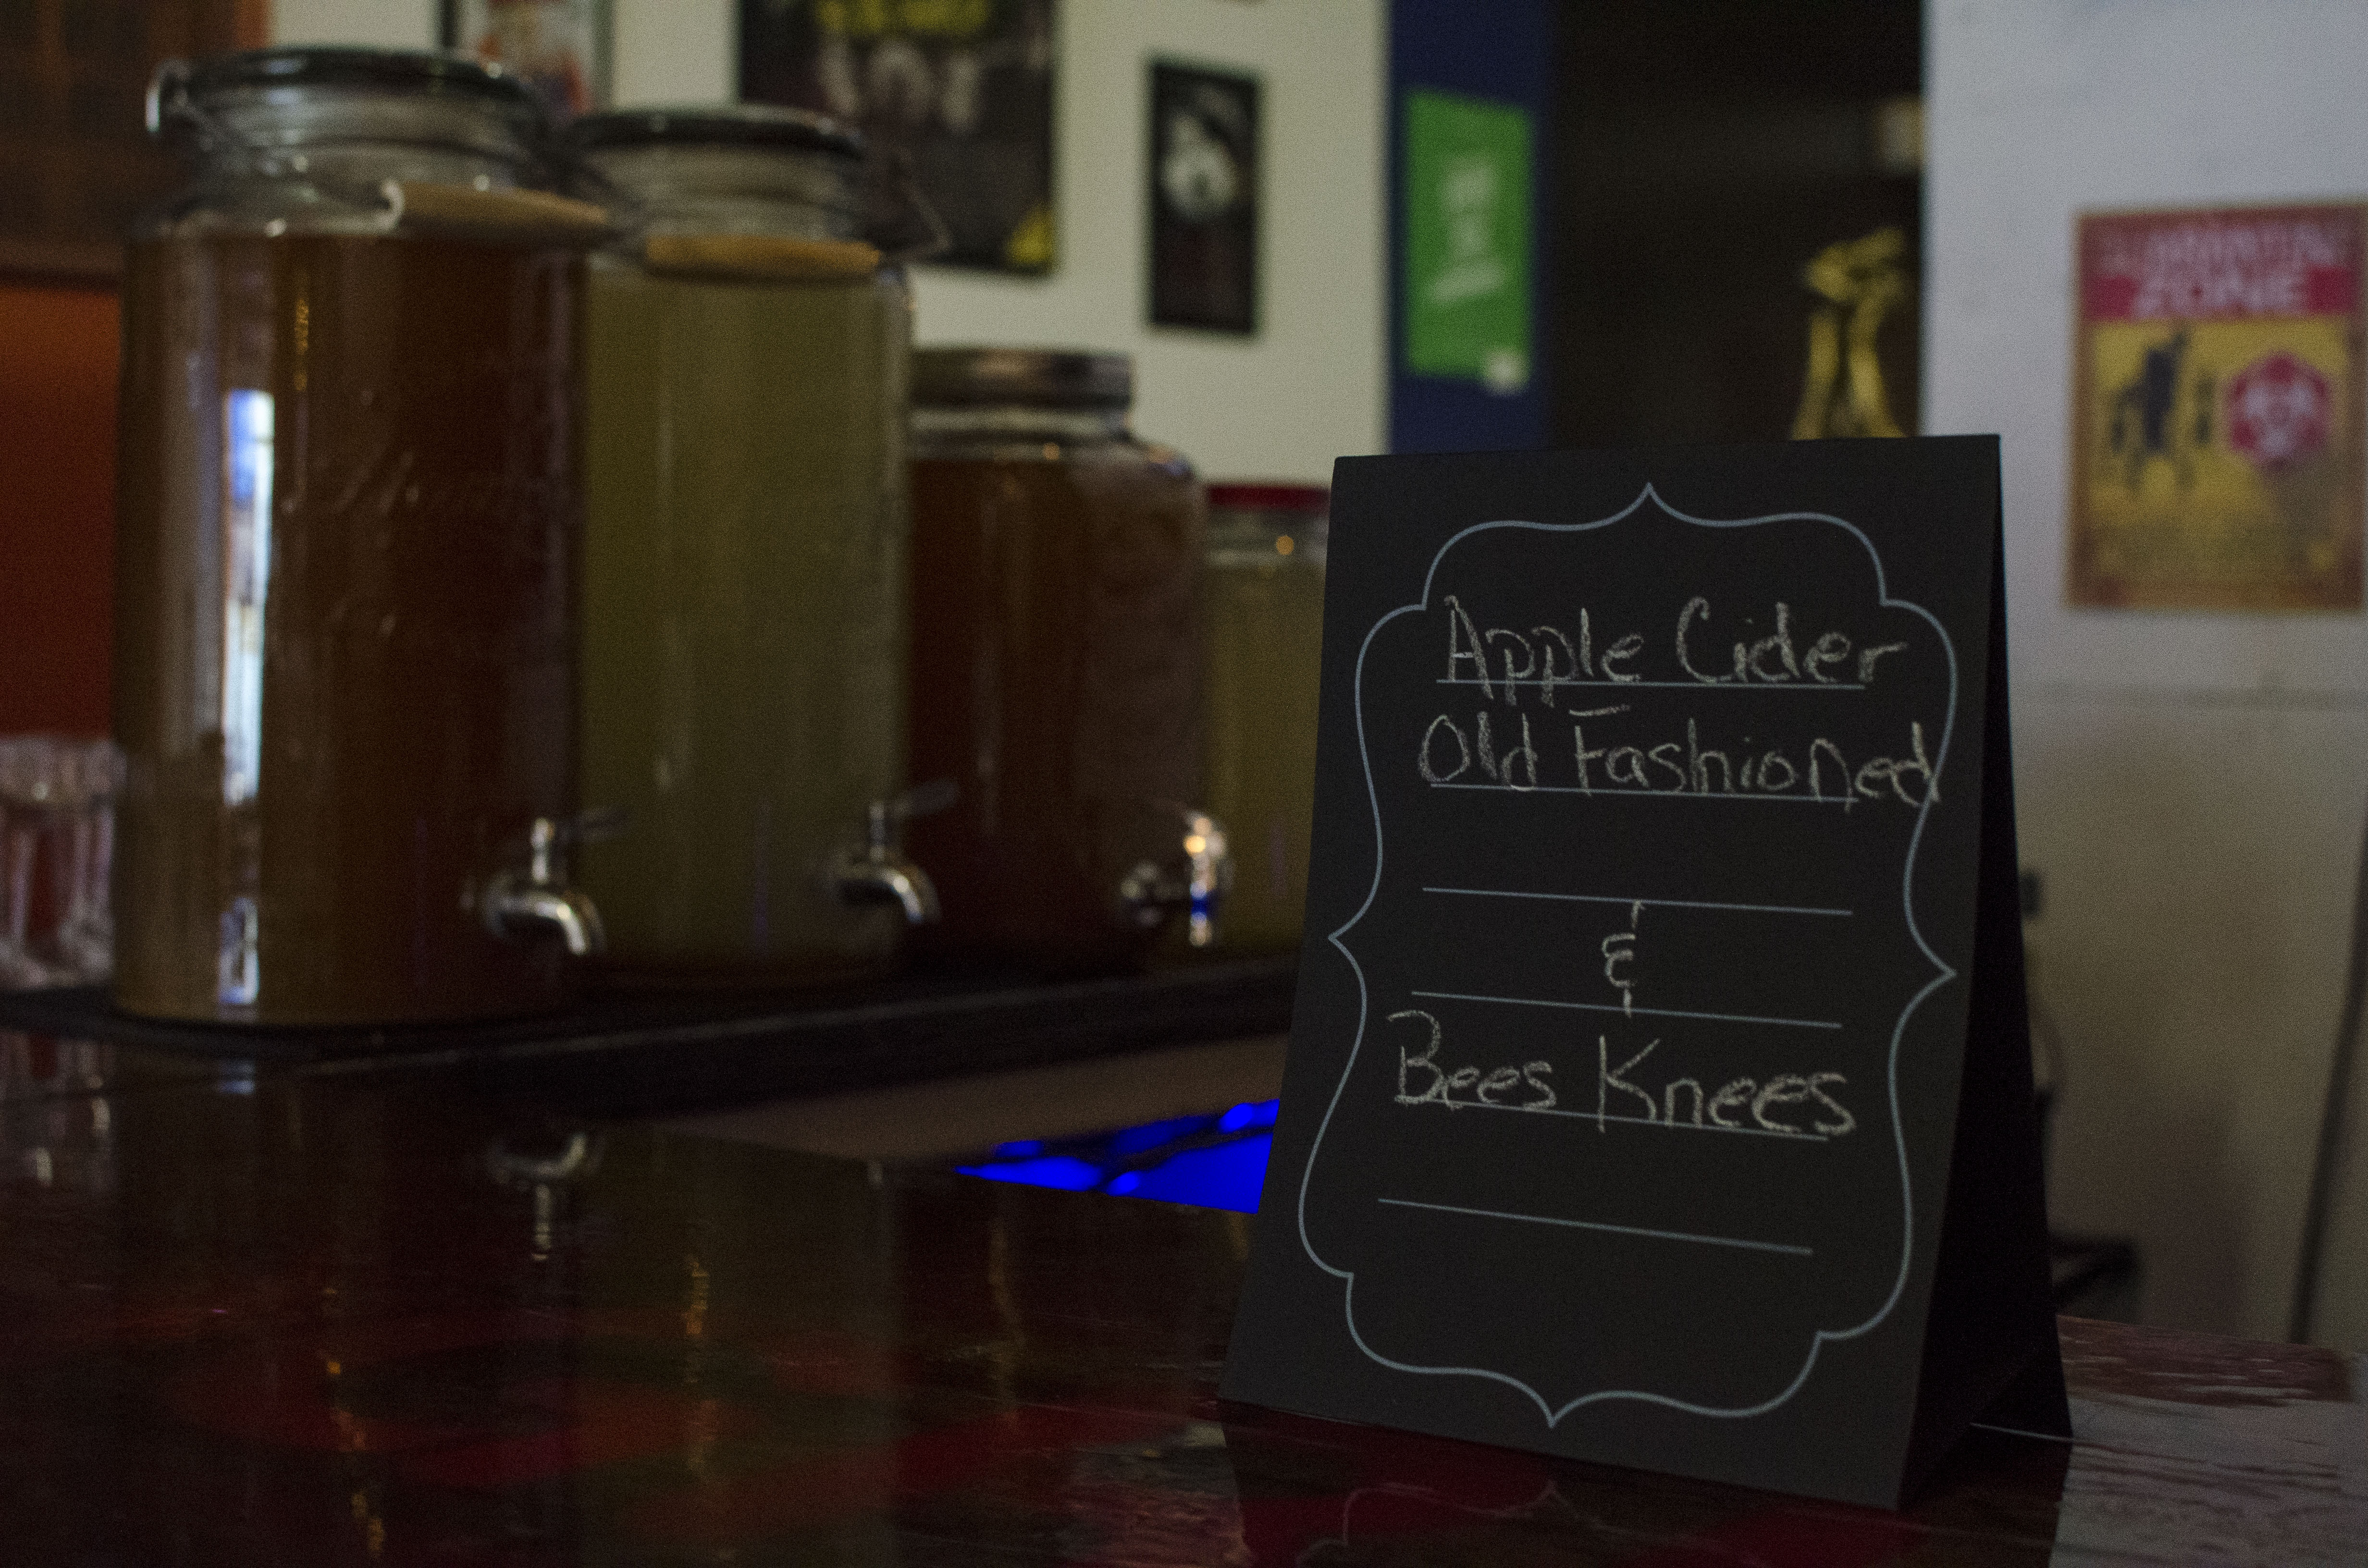 Apple Cider
Old Fashioned
&
Bees Knees
ZONE